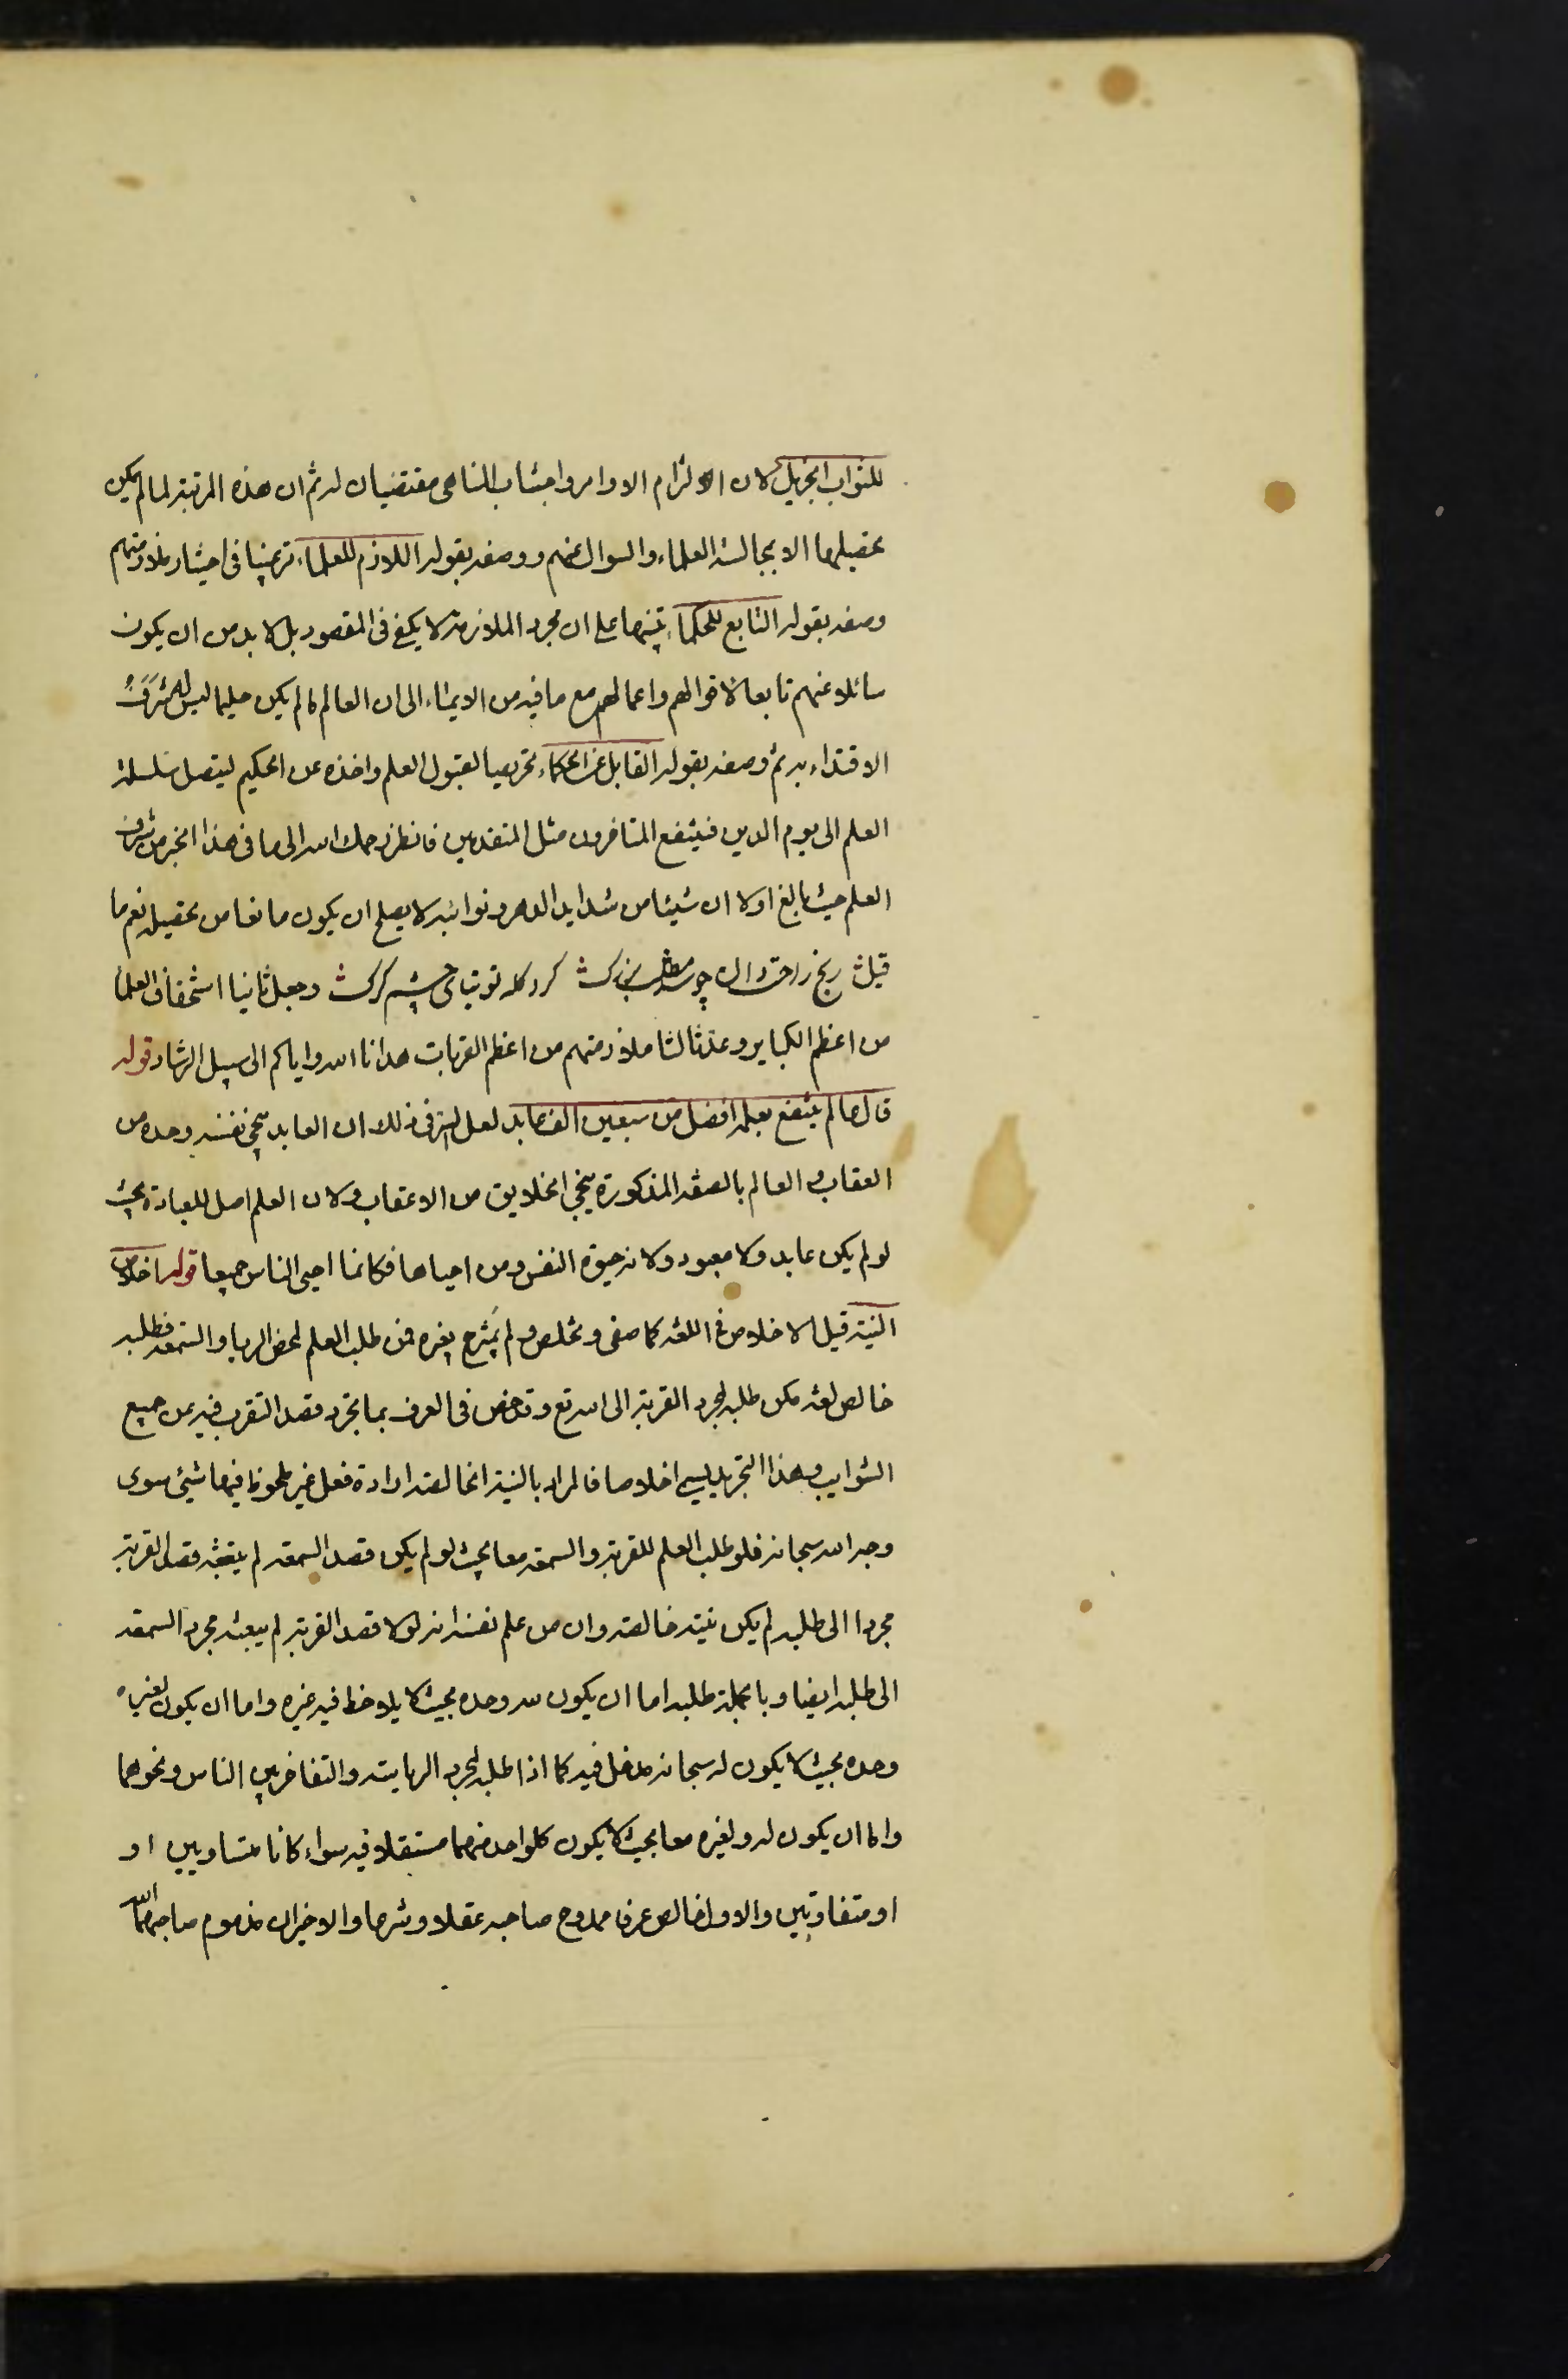 للثواب الجزيل لان التزام الاوامر واجتناب المناهى مقتضيان له ثم ان هذه المرتبة لما لم يكن
تحصيلها الا بمجالسة العلماء والسوال عنهم ووصفه بقوله اللازم للعلماء ترغيبا فى اختيار ملازمتهم
وصفه بقوله التابع للحكماء تنبيها على ان مجرد الملازمة لا يكفى فى المقصود بل لا بد من ان يكون
سائلا عنهم تابعا لاقوالهم واعمالهم مع ما فيه من الايماء الى ان العالم ما لم يكن حليما ليس له شرف
الاقتداء به ثم وصفه بقوله القابل عن الحكماء تحريصا لقبول العلم واخذه عن الحكيم ليتصل سلسلة
العلم الى يوم الدين فينتفع المتاخرون مثل المتقدمين فانظر رحمك الله الى ما فى هذا الخبر من شرف
العلم حيث بالغ اولا ان شيئا من شدايد الدهر ونوائبه لا يصلح ان يكون مانعا من تحصيله نعم ما
قيل رنج راحت دان چو شد مطلب بزرك كرد كله توتياى چشم كرك وجعل ثانيا استخفاف العلماء
من اعظم الكباير وعد ثالثا ملازمتهم من اعظم القربات هدانا الله واياكم الى سبيل الرشاد قوله
قال عالم ينتفع بعلمه افضل من سبعين الف عابد لعل السر فى ذلك ان العابد ينجى نفسه وحده من
العقاب و العالم بالصفة المذكورة ينجى الخلايق من الاعقاب ولان العلم اصل للعبادة بحيث
لو لم يكن عابد ولا معبود ولانه حيوة النفس ومن احياها فكانما احيى الناس جميعا قوله اخلاص
النية قيل الاخلاص فى اللغة كلما صفى وتخلص ولم يمتزج بغيره فمن طلب العلم لمحض الريا والسمعة فطلبه
خالص لغة كمن طلبه لمجرد القربة الى الله تع وقد خص فى العرف بما تجرد قصد التقرب فيه عن جميع
الشوايب وهذا التجريد يسمى اخلاصا فالمراد بالنية الخالصة ارادة فعل غير ملحوظ فيها شيئ سوى
وجه الله سبحانه فلو طلب العلم للقربة والسمعة معا بحيث لو لم يكن قصد السمعة لم يبعثه قصد القربة
مجردا الى طلبه لم يكن نيته خالصة وان من علم نفسه انه لولا قصد القربة لم يبعثه مجرد السمعة
الى طلبه ايضا وبالجملة طلبه اما ان يكون لله وحده بحيث لا يلاحظ فيه غيره واما ان يكون لغيره
وحده بحيث لا يكون له سبحانه مدخل فيه كما اذا طلبه لمجرد الرياسة والتفاخر بين الناس ونحوهما
واما ان يكون له ولغيره معا بحيث لا يكون كلواحد منهما مستقلا فيه سواء كانا متساويين او
او متفاوتين والاول خالص عرفا ممدوح صاحبه عقلا وشرعا والاخيران مذموم صاحبهما